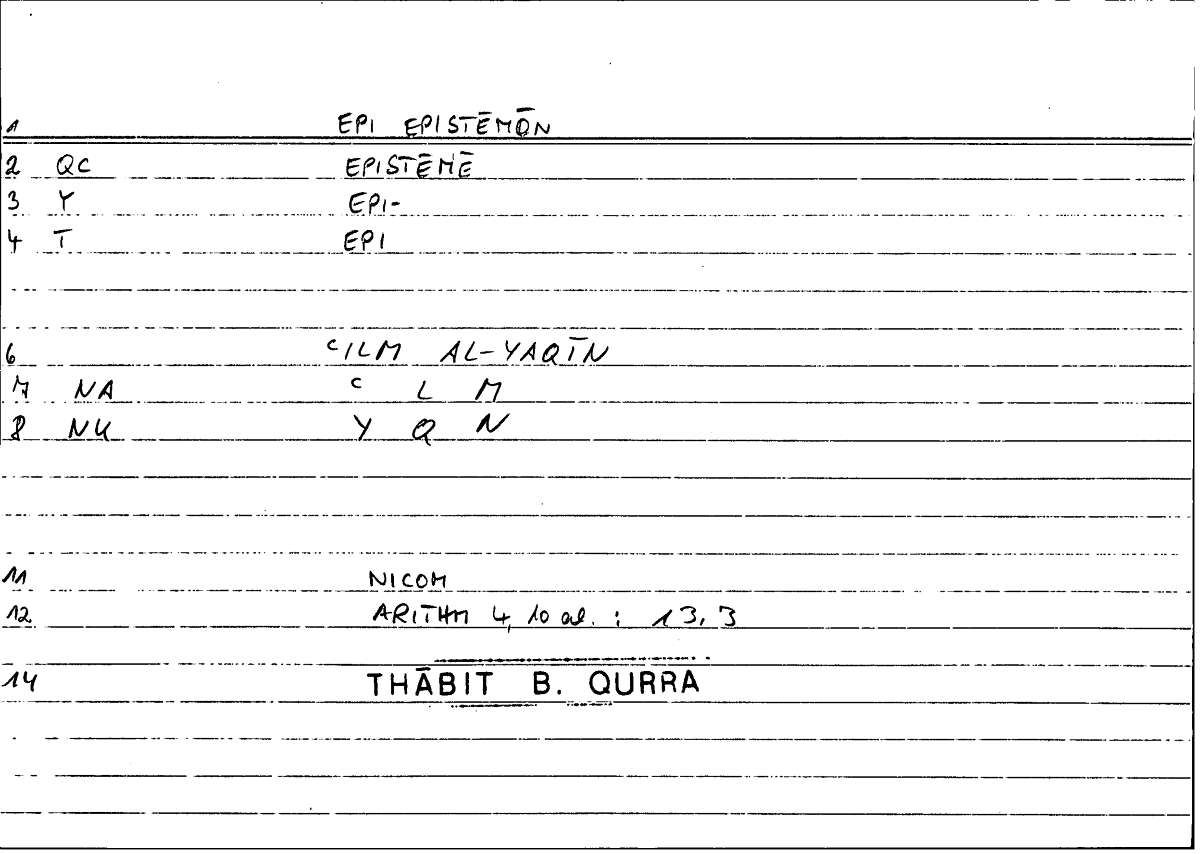 1 EPI EPISTĒMŌN
2 QC EPISTĒMĒ
3 Y EPI-
4 T EPI
6 ᶜILM AL-YAQĪN
7 NA ᶜ L M
8 NU Y Q N
11 NICOM
12 ARITHM 4, 10 al. : 13, 3
14 THĀBIT B. QURRA